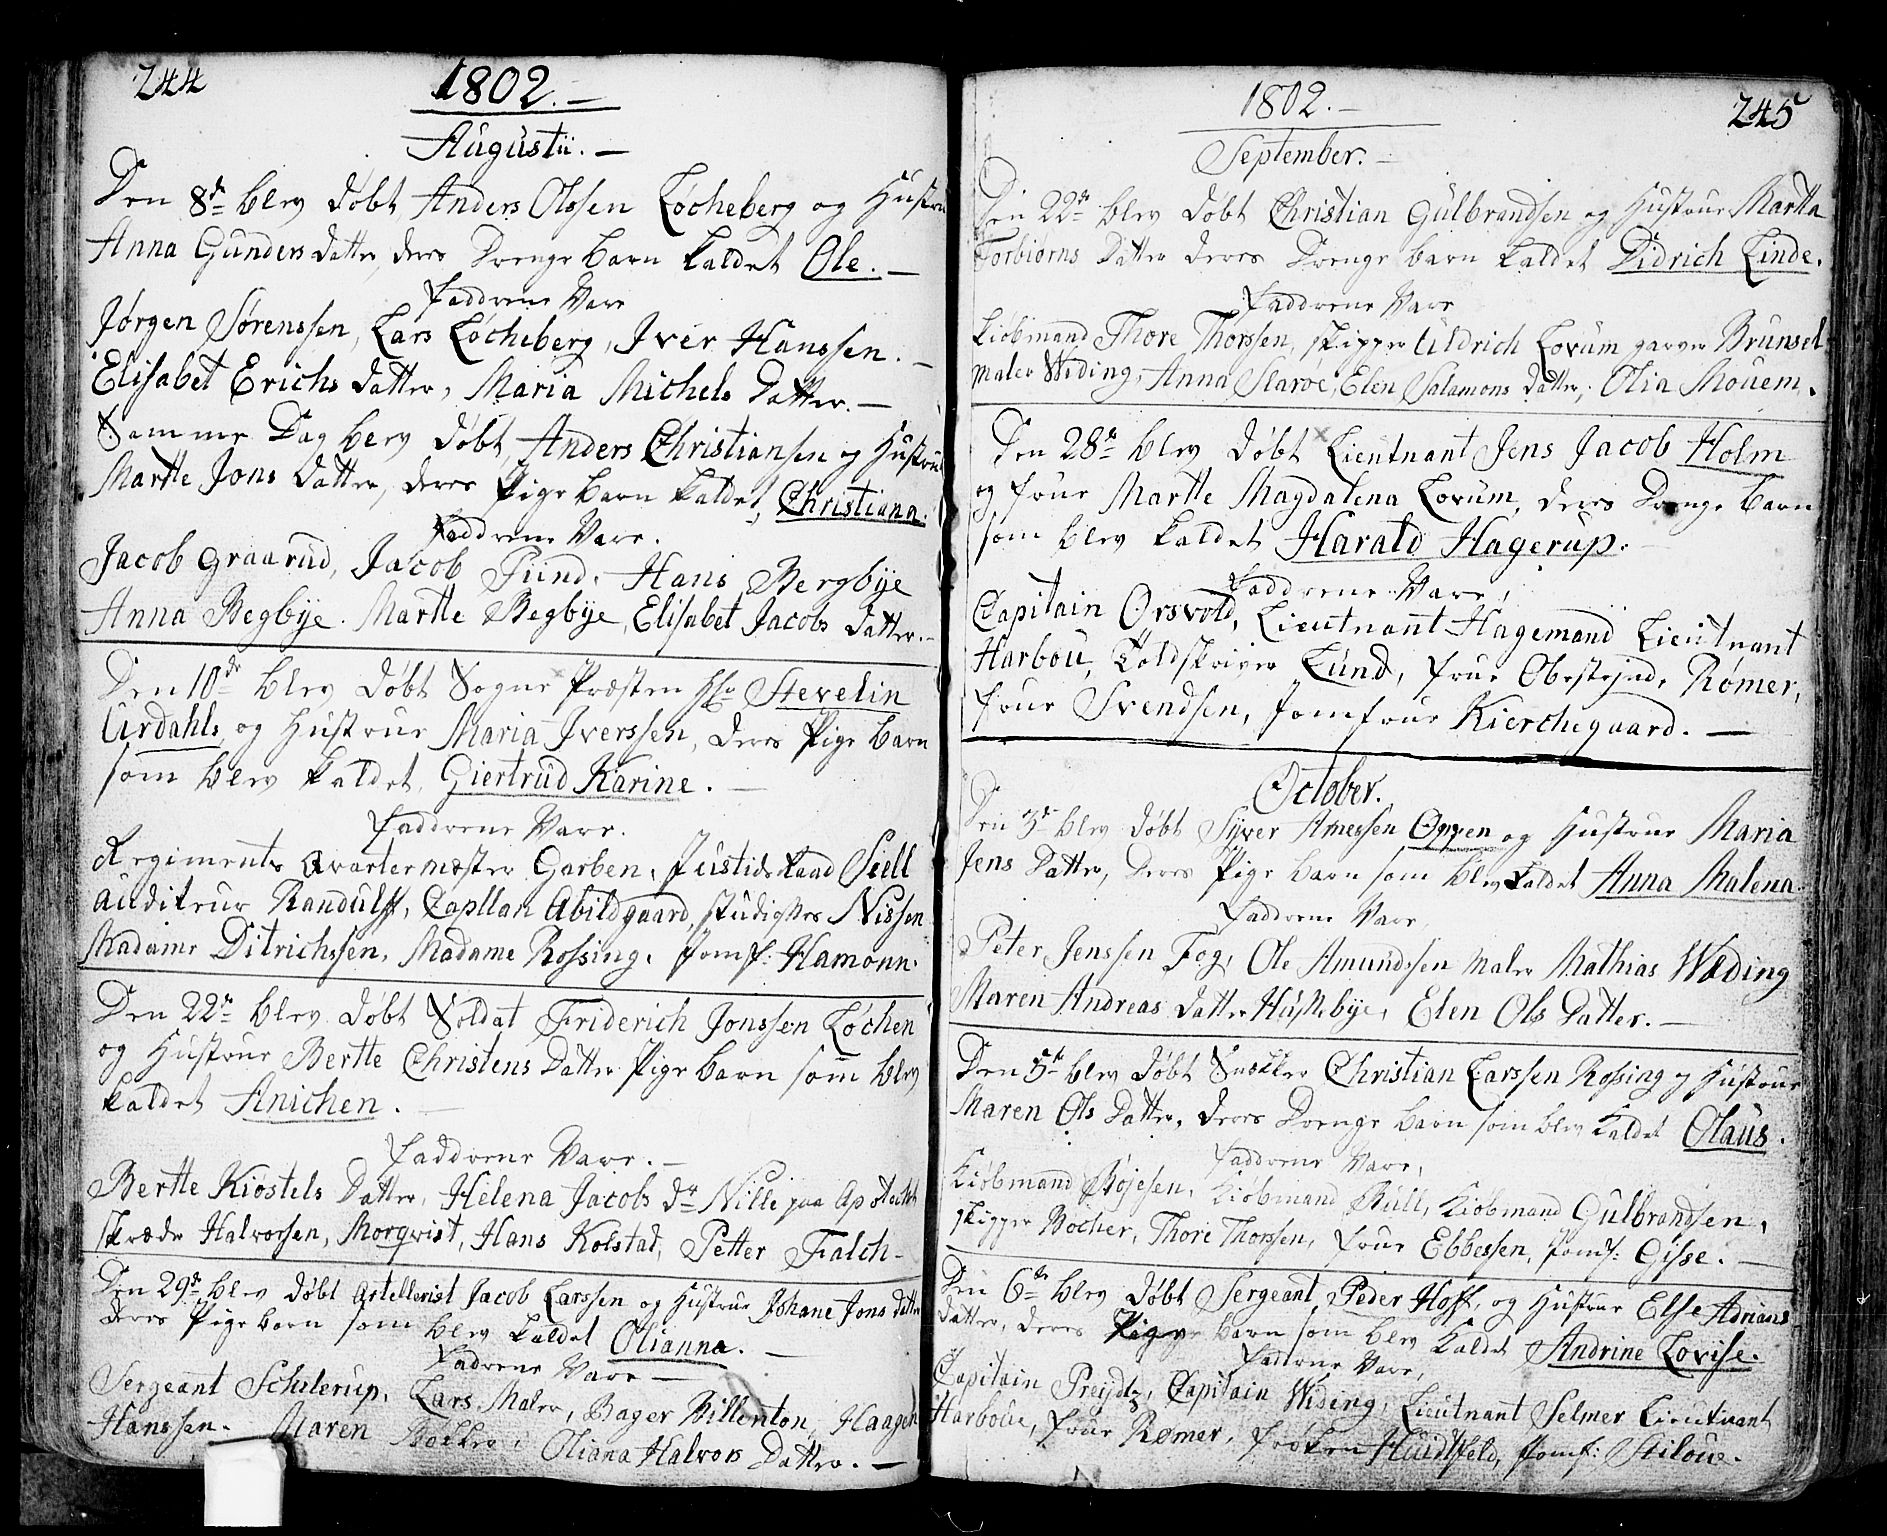 244
1802.
Augustii.
Den 8de blev døbt Anders Olssen Løcheberg og Hustrue
Anna Gunders datter, deres Drenge barn kaldet Ole.
Faddrene Vare
Jørgen Sørenssen, Lars Løcheberg, Iver Hanssen.
Elisabet Erichs datter, Maria Michels Datter.
Samme Dag blev døbt, Anders Christiansen og Hustrue
Martte Jons Datter, deres Pige barn kaldet, Christiana.
Faddrene Vare.
Jacob Graarud, Jacob Pünd, Hans Bergbÿe
Anna Begbÿe. Martte Begbÿe, Elisabet Jacobs datter.
Den 10de blev døbt Sogne Præsten Hr. Stevelin
Urdahls, og Hustrue Maria Iverssen, deres Pige barn
som blev kaldet, Giertrud Karine.
Faddrene Vare.
Regiments Qvartermæster Garben, Justids Raad Sell
auditeur Randulff, Capllan Abildgaard, Studiosus Nissen
Madame Ditrichssen, Madame Rossing, Jomf: Hamonn.
Den 22de blev døbt Soldat Friderich Jonssen Løchen
og Hustrue Bertte Christens Datter Pige barn som blev
kaldet Anichen.
Faddrene Vare.
Bertte Kiøstels Datter, Helena Jacobs Dr Nille paa Apothekt
Skræder Halvorsen, Morqvist, Hans Kolstad, Petter Falch
Den 29de blev døbt Artellerist Jacob Larssen og Hustrue Johane Jons datter
deres Pige barn som blev kaldet Olianna.
Fadrene Vare
Sergeant Schilerup, Lars Maler, Bager Billenton, Haagen
Hanssen. Maren Bøkker, Oliana Halvors Datter.
245
1802.
September.
Den 22de blev døbt Christian Gulbrandsen og Hustrue Martta
Torbiørns Datter deres Drenge barn kaldet Didrich Linde.
Faddrene Vare
Kiøbmand Thore Thorssen, Skipper Uldrich Lorum garver Brunsel
Maler Widing, Anna Slaroe, Elen Salamons datter, Olia Mouem.
Den 28de blev døbt Lieutnant Jens Jacob Holm
og frue Martte Magdalena Lorum, deres Drenge barn
som blev kaldet Harald Hagerup.
Faddrene Vare,
Capitain Orsvold, Lieutnannt Hagemand Lieutnant
Harbou, Toldskriver Lund, frue Oberstejnde Rømer,
frue Svendsen, Jomfrue Kierchegaard.
October.
Den 3de blev døbt Sÿver Arnessen Oppen og Hustrue Maria
Jens Datter, deres Pige barn som blev kaldet Anna Malena.
Faddrene Vare,
Peter Jenssen Fog, Ole Amundssen Maler Mathias Wæding
Maren Andreas datter Huslebÿe, Elen Ols Datter.
Den 5te blev døbt Snækker Christian Larssen Rossing og Hustrue
Maren Ols Datter, deres Drenge barn som blev kaldet Olaus.
Faddrene Vare,
Kiøbmand Bøjesen, Kiøbmand Bull, Kiøbmand Gulbrandsen,
Skipper Bocher, Thore Thorssen, frue Ebbessen, Jomf: Gisse.
Den 6de blev døbt Sergeant Peder Hoff, og Hustrue Else Adrians
datter, deres Pige barn som blev kaldet Andrine Lovise.
Faddrene Vare,
Capitain Preijdtz, Capitain Widing, Lieutnant Selmer Lieutnant
Harboue, frue Rømer, frøken Huidtfeld, Jomf: Stiloue.